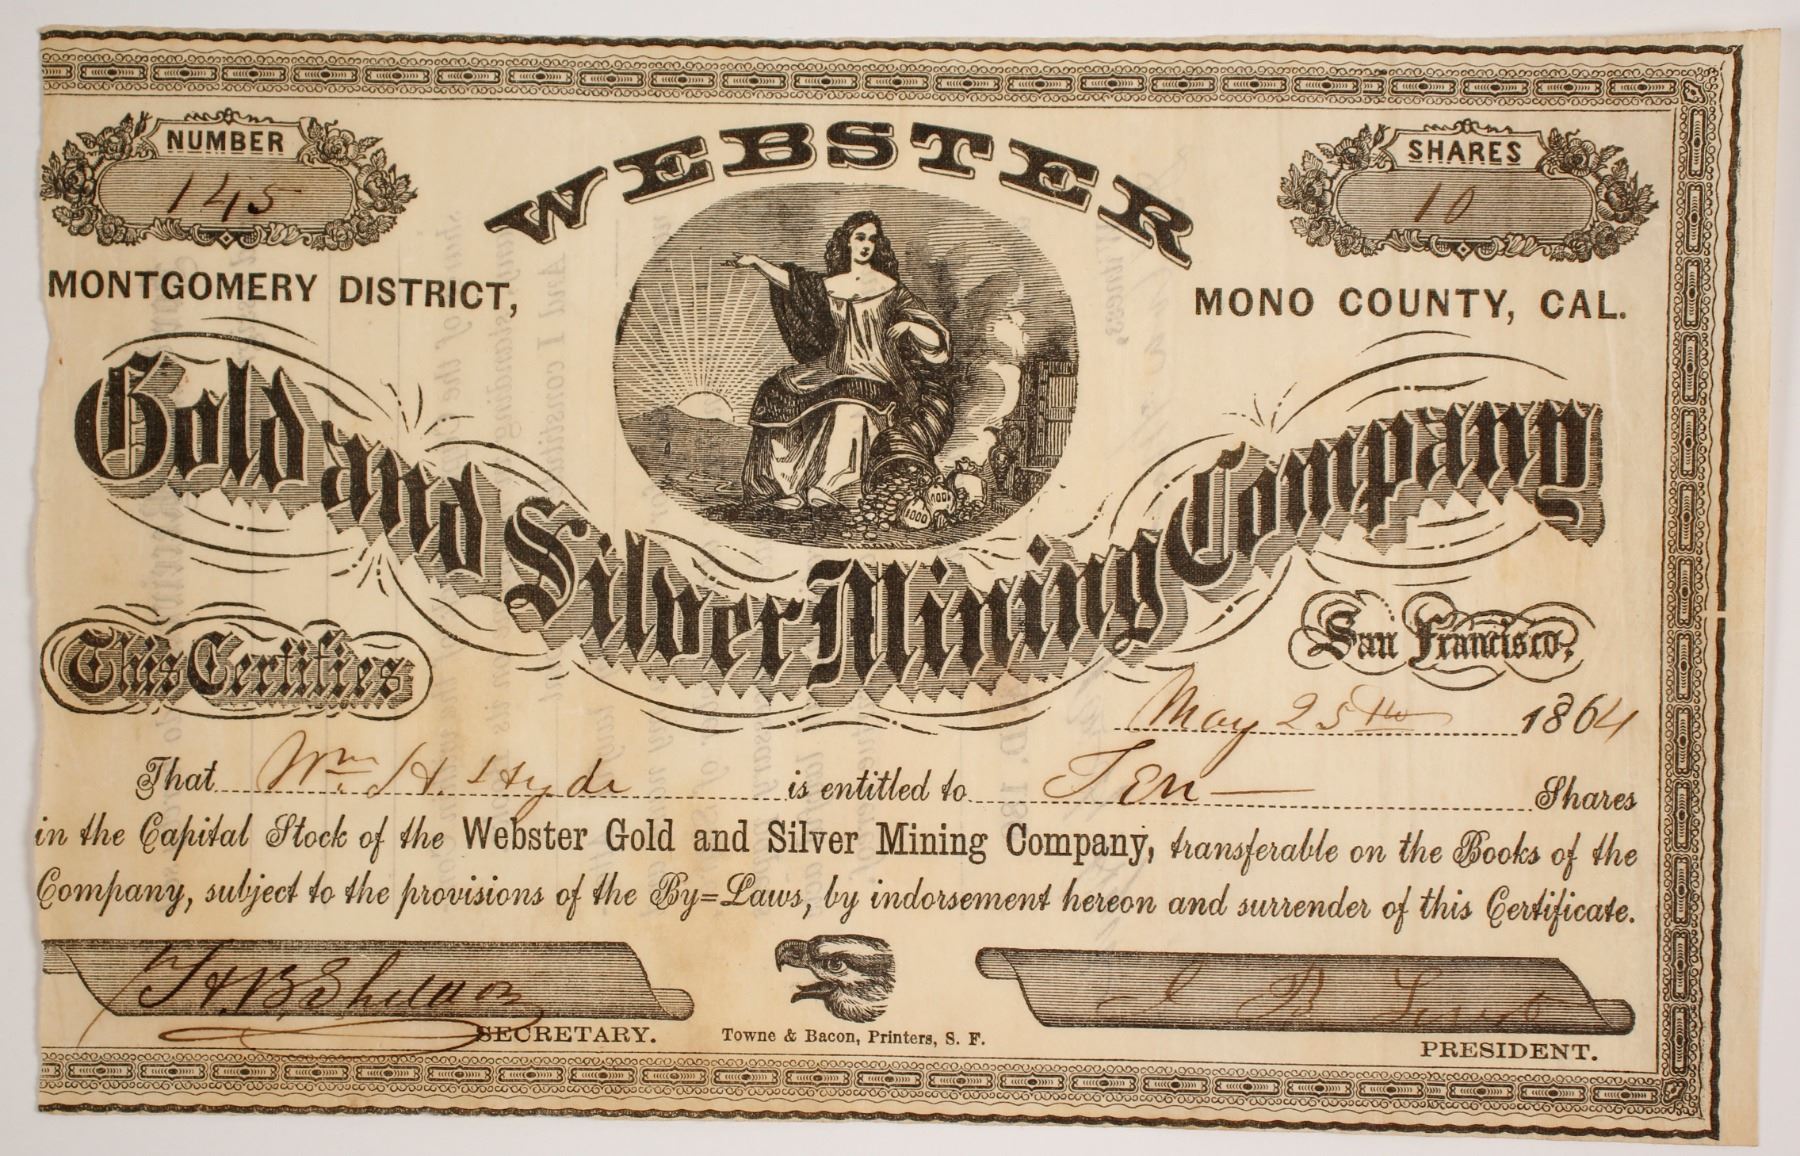 NUMBER
145
WEBSTER
SHARES
10
MONTGOMERY DISTRICT,
MONO COUNTY, CAL.
1000
1000
Gold and Silver Mining Company
This Certifies
San Francisco,
May 25th 1864
That Wm. H. Hyde is entitled to Ten Shares
in the Capital Stock of the Webster Gold and Silver Mining Company, transferable on the Books of the
Company, subject to the provisions of the By=Laws, by indorsement hereon and surrender of this Certificate.
SECRETARY.
Towne & Bacon, Printers, S. F.
PRESIDENT.